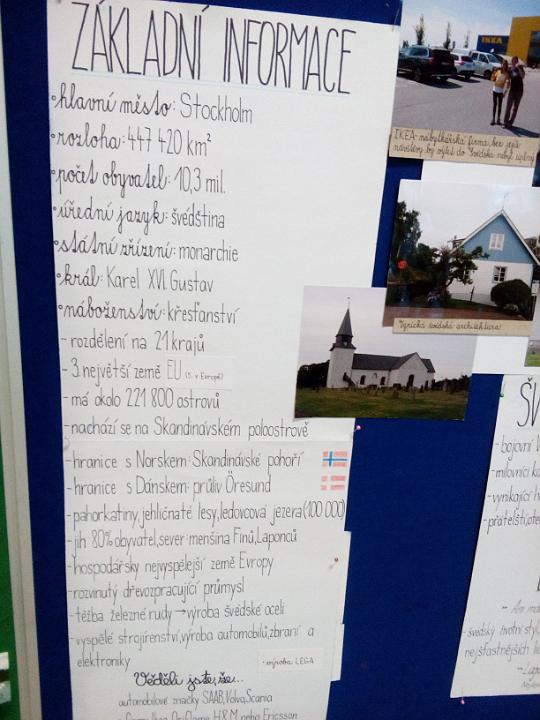 ZÁKLADNÍ INFORMACE
hlavní město: Stockholm
rozloha: 447 420 km²
počet obyvatel: 10,3 mil.
úřední jazyk: švédština
státní zřízení: monarchie
král: Karel XVI. Gustav
náboženství: křesťanství
- rozdělení na 21 krajů
- 3. největší země EU (5. v Evropě)
- má okolo 221 800 ostrovů
- nachází se na Skandinávském poloostrově
- hranice s Norskem: Skandinávské pohoří
- hranice s Dánskem: průliv Öresund
- pahorkatiny, jehličnaté lesy, ledovcová jezera (100 000)
- jih 80% obyvatel, sever: menšina Finů, Laponců
- hospodářsky nejvyspělejší země Evropy
- rozvinutý dřevozpracující průmysl
- těžba železné rudy → výroba švédské oceli
- vyspělé strojírenství, výroba automobilů, zbraní a
elektroniky
- výroba LEGA
Věděli jste, že...
automobilové značky SAAB, Volvo, Scania
H&M nebo Ericsson
IKEA
IKEA - nábytkářská firma, bez její
návštěvy by výlet do Švédska nebyl úplný
Typická švédská architektura
ŠV
- bojovní V
- milovníci k
- vynikající h
- přátelští, ote
- švédský životní styl
nejšťastnějších li